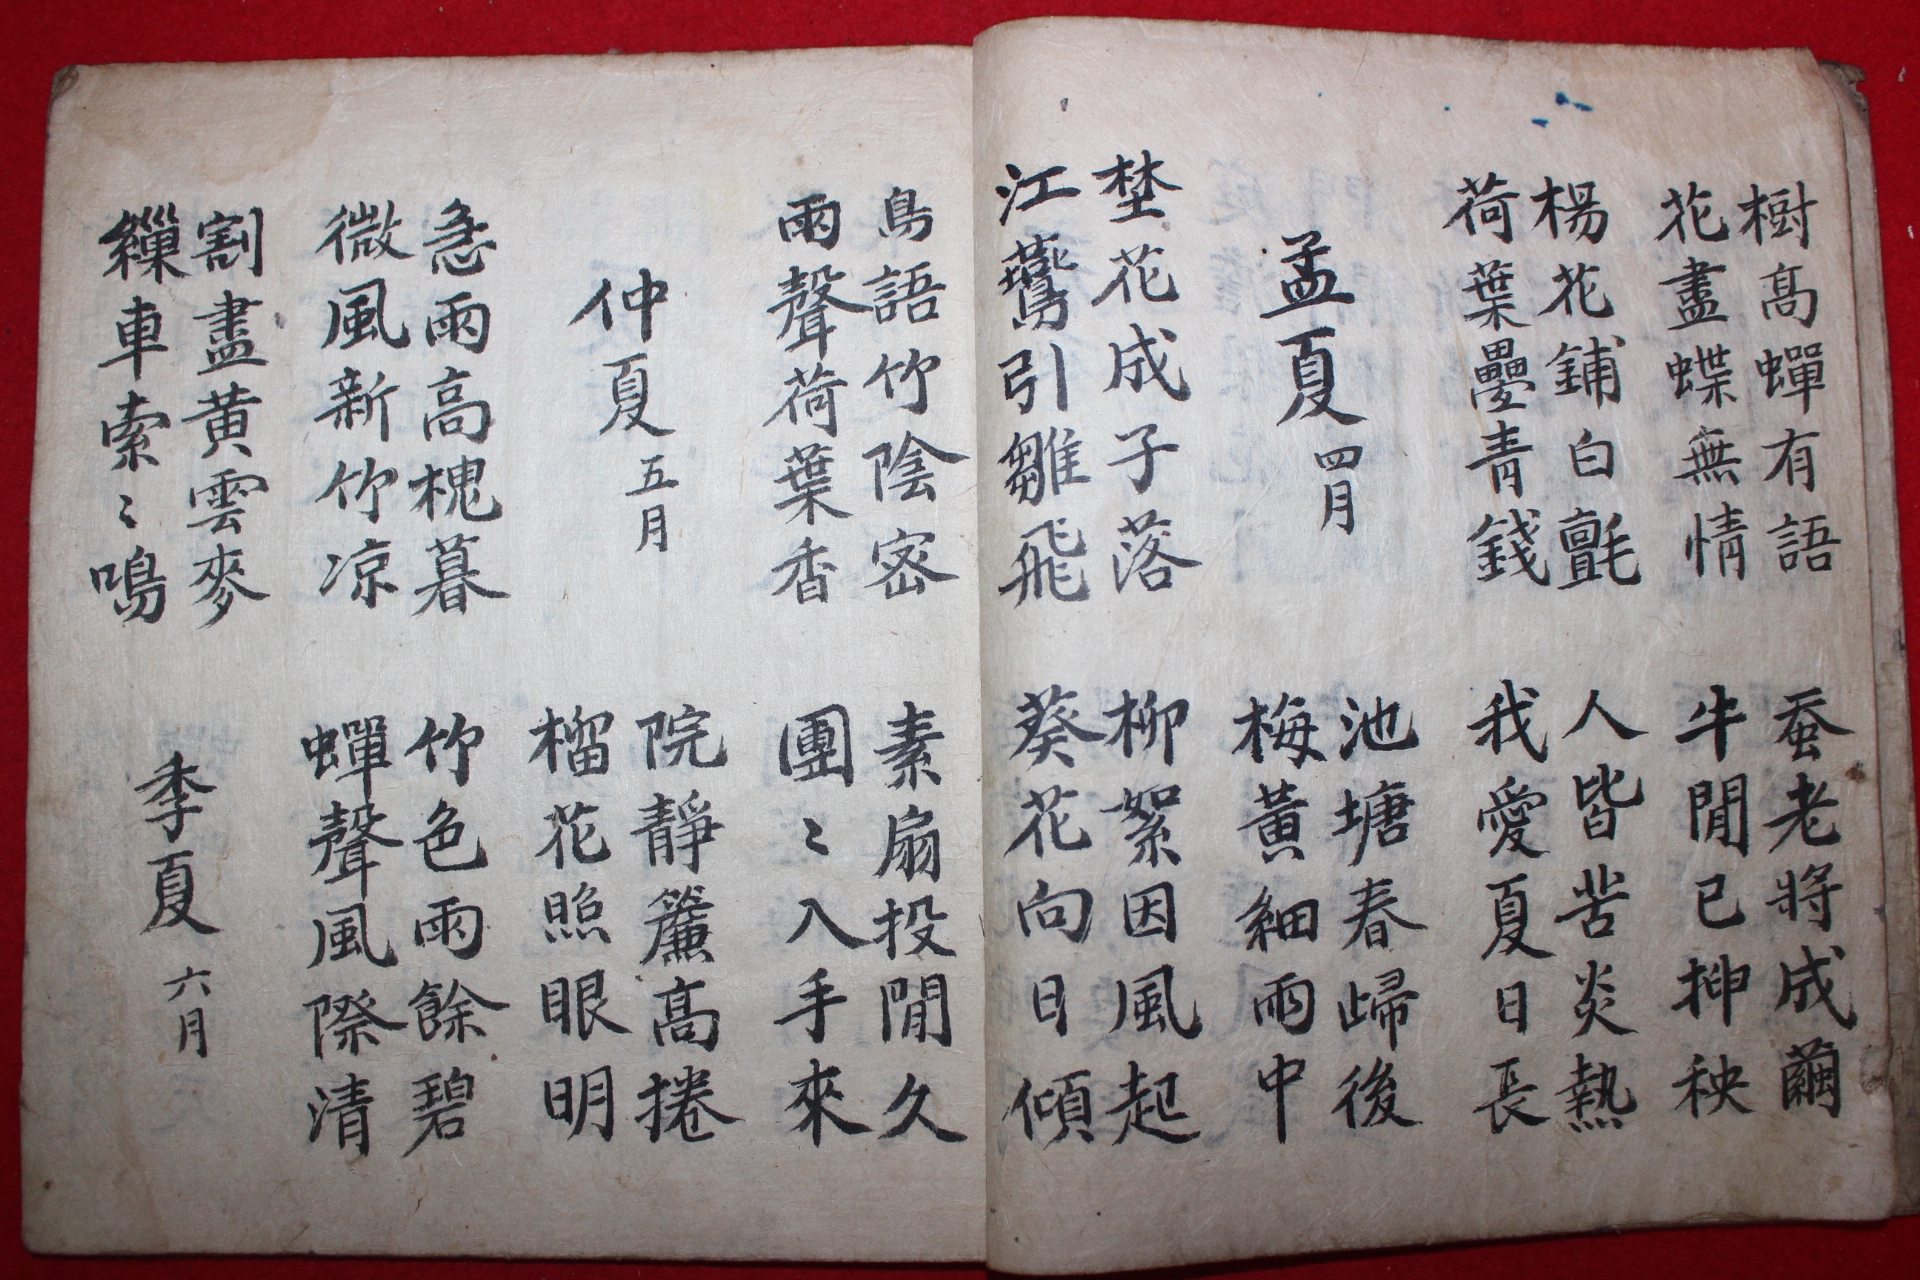 樹髙蟬有語
花盡蝶無情
蚕老將成繭
牛閒已挿秧
楊花鋪白氈
荷葉疊青錢
人皆苦炎熱
我愛夏日長
孟夏 四月
池塘春歸後
梅黃細雨中
埜花成子落
江鷰引雛飛
柳絮因風起
葵花向日傾
鳥語竹陰密
雨聲荷葉香
素扇投閒久
團〻入手來
仲夏 五月
院靜簾髙捲
榴花照眼明
急雨高槐暮
微風新竹凉
竹色雨餘碧
蟬聲風際清
割盡黃雲麥
繅車索〻鳴
季夏 六月